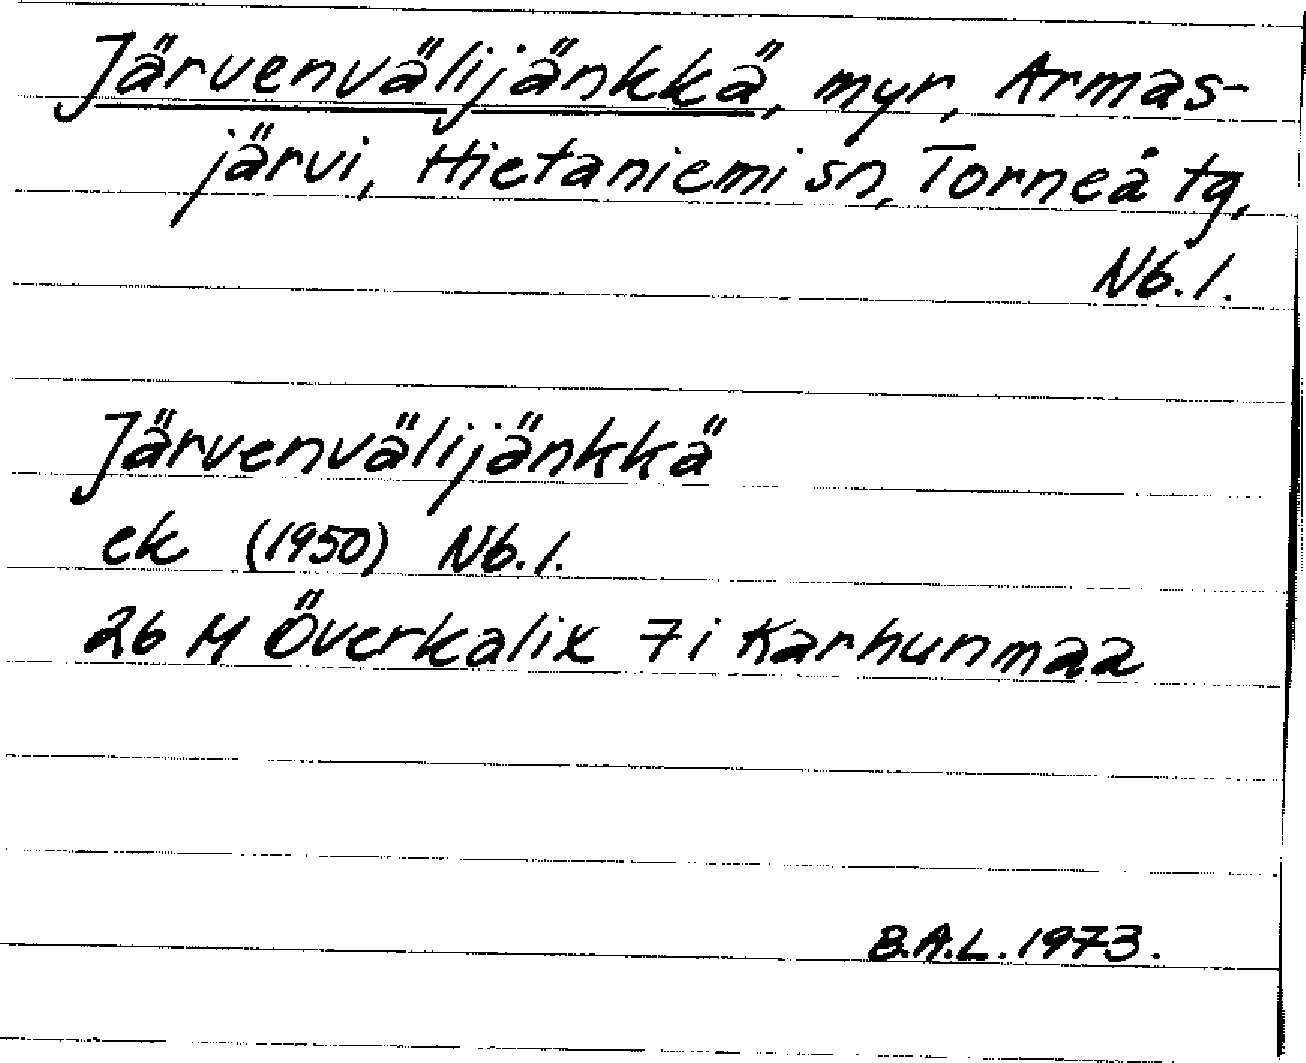 Järvenvälijänkkä, myr, Armas-
järvi, Hietaniemi sn, Torneå tg,
Nb. l.
Järvenvälijänkkä
ek (1950) Nb. l.
26 M Överkalix 7i Karhunmaa
B.A.L. 1973.